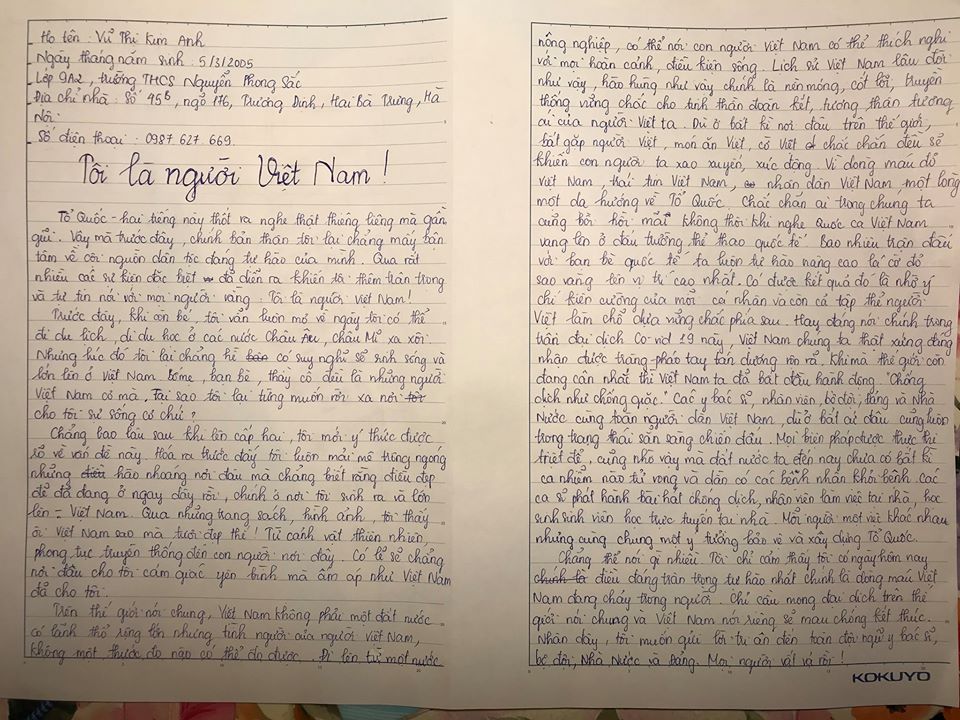 Họ tên : Vũ Thị Kim Anh
Ngày tháng năm sinh : 5/3/2005
Lớp 9A2, trường THCS Nguyễn Phong Sắc
Địa chỉ nhà : Số 45B, ngõ 176, Trương Định, Hai Bà Trưng, Hà
Nội
Số điện thoại : 0987 627 669.
Tôi là người Việt Nam !
Tổ Quốc - hai tiếng này thốt ra nghe thật thiêng liêng mà gần
gũi. Vậy mà trước đây, chính bản thân tôi lại chẳng mấy bận
tâm về cội nguồn dân tộc đáng tự hào của mình. Qua rất
nhiều các sự kiện đặc biệt đã diễn ra khiến tôi thêm trân trọng
và tự tin nói với mọi người rằng : Tôi là người Việt Nam!
Trước đây, khi còn bé, tôi vẫn luôn mơ về ngày tôi có thể
đi du lịch, đi du học ở các nước Châu Âu, châu Mĩ xa xôi.
Nhưng lúc đó tôi lại chẳng hề có suy nghĩ sẽ sinh sống và
lớn lên ở Việt Nam. Bố mẹ, bạn bè, thầy cô đều là những người
Việt Nam cơ mà, tại sao tôi lại từng muốn rời xa nơi
cho tôi sự sống cơ chứ ?
Chẳng bao lâu sau khi lên cấp hai, tôi mới ý thức được
rõ về vấn đề này. Hoá ra trước đây tôi luôn mải mê trông ngóng
những hào nhoáng nơi đâu mà chẳng biết rằng điều đẹp
đẽ đã đang ở ngay đây rồi, chính ở nơi tôi sinh ra và lớn
lên - Việt Nam. Qua những trang sách, hình ảnh, tôi thấy
ôi Việt Nam sao mà tươi đẹp thế ! Từ cảnh vật thiên nhiên,
phong tục truyền thống đến con người nơi đây. Có lẽ sẽ chẳng
nơi đâu cho tôi cảm giác yên bình mà ấm áp như Việt Nam
đã cho tôi.
Trên thế giới nói chung, Việt Nam không phải một đất nước
có lãnh thổ rộng lớn nhưng tình người của người Việt Nam,
không một thước đo nào có thể đo được. Đi lên từ một nước
nông nghiệp, có thể nói con người Việt Nam có thể thích nghi
với mọi hoàn cảnh, điều kiện sống. Lịch sử Việt Nam lâu đời
như vậy, hào hùng như vậy chính là nền móng, cốt lõi, truyền
thống vững chắc cho tinh thần đoàn kết, tương thân tương
ái của người Việt ta. Dù ở bất kì nơi đâu trên thế giới,
bắt gặp người Việt, món ăn Việt, cờ Việt chắc chắn đều sẽ
khiến con người ta xao xuyến, xúc động. Vì dòng máu đỏ
Việt Nam, trái tim Việt Nam, nhân dân Việt Nam, một lòng
một dạ hướng về Tổ Quốc. Chắc chắn ai trong chúng ta
cũng bồi hồi mãi không thôi khi nghe Quốc ca Việt Nam
vang lên ở đấu trường thể thao quốc tế. Bao nhiêu trận đấu
với bạn bè quốc tế ta luôn tự hào nâng cao lá cờ đỏ
sao vàng lên vị trí cao nhất. Có được kết quả đó là nhờ ý
chí kiên cường của mỗi cá nhân và còn cả tập thể người
Việt làm chỗ dựa vững chắc phía sau. Hay đang nói chính trong
trận đại dịch Co-vid 19 này, Việt Nam chúng ta thật xứng đáng
nhận được tràng pháo tay tán dương rôm rả. Khi mà thế giới còn
đang cân nhắc thì Việt Nam ta đã bắt đầu hành động. "Chống
dịch như chống giặc." Các y bác sĩ, nhân viên, bộ đội, Đảng và Nhà
Nước cùng toàn người dân Việt Nam, dù ở bất cứ đâu cũng luôn
trong trạng thái sẵn sàng chiến đấu. Mọi biện pháp được thực thi
triệt để, cũng nhờ vậy mà đất nước ta đến nay chưa có bất kì
ca nhiễm nào tử vong và dần có các bệnh nhân khỏi bệnh. Các
ca sĩ phát hành bài hát chống dịch, nhân viên làm việc tại nhà, học
sinh sinh viên học trực tuyến tại nhà. Mỗi người một việc khác nhau
nhưng cùng chung một ý tưởng bảo vệ và xây dựng Tổ Quốc.
Chẳng thể nói gì nhiều. Tôi chỉ cảm thấy tôi có ngày hôm nay
điều đáng trân trọng tự hào nhất chính là dòng máu Việt
Nam đang chảy trong người. Chỉ cầu mong đại dịch trên thế
giới nói chung và Việt Nam nói riêng sẽ mau chóng kết thúc.
Nhân đây, tôi muốn gửi lời tri ân đến toàn đội ngũ y bác sĩ,
bộ đội, Nhà Nước và Đảng. Mọi người vất vả rồi !
KOKUYO